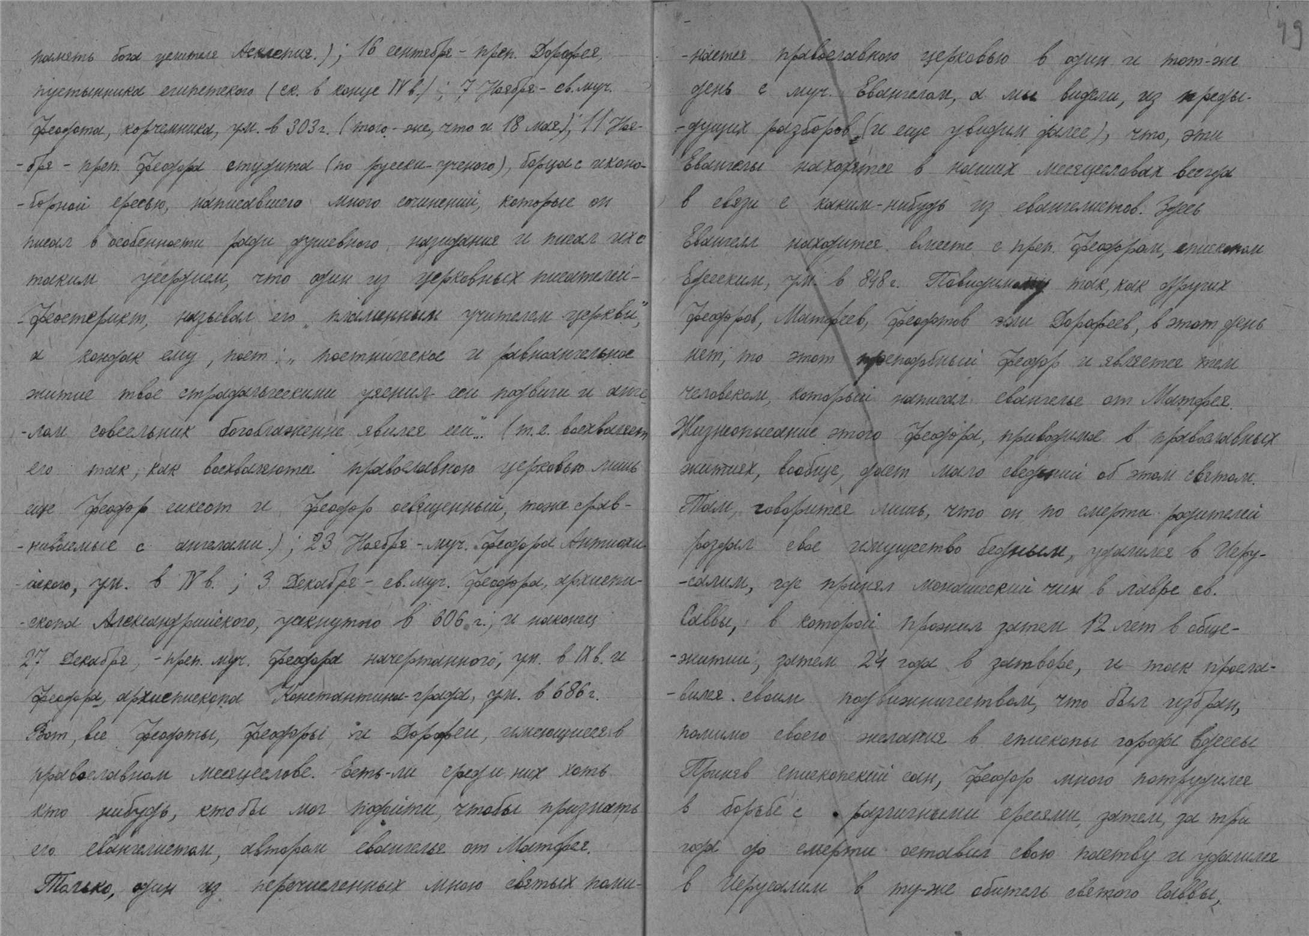 память бога целителя Асклепия.); 16 сентября - преп. Дорофея,
пустынника египетского (ск. в конце IV в.); 7 Ноября - св. муч.
Феодота, корчемника, ум. в 303 г. (того-же, что и 18 мая); 11 Ноя-
-бря - преп. Феодора студита (по русски-ученого), борца с иконо-
-борной ересью, написавшего много сочинений, которые он
писал в особенности ради душевного назидания и писал их с
таким усердием, что один из церковных писателей -
- Феостирикт, называл его „пламенным учителем церкви",
а кондак ему, поет: „постническое и равноангельное
житие твое страдальческими уяснил еси подвиги и анге-
-лом совсельник богоблаженне явился еси".. (т.е. восхваляет
его так, как восхваляются православною церковью лишь
еще Феодор сикеот и Феодор освященный, тоже срав-
-ниваемые с ангелами.); 23 Ноября - муч. Феодора Антиохи-
-йского, ум. в IV в.; 3 Декабря - св. муч. Феодора, архиепи-
-скопа Александрийского, усекнутого в 606 г.; и наконец
27 Декабря, - преп. муч. Феодора начертанного, ум. в IX в. и
Феодора, архиепископа Константина-града, ум. в 686 г.
Вот, все Феодоты, Феодоры и Дорофеи, имеющиеся в
православном месяцеслове. Есть-ли среди них хоть
кто нибудь, кто бы мог подойти, чтобы признать
его евангелистом, автором евангелья от Матфея.
Только, один из перечисленных мною святых поми-
49
-нается православною церковью в один и тот-же
день с муч. Евангелом, а мы видели, из преды-
-дущих разборов (и еще увидим далее), что, эти
Евангелы находятся в наших месяцесловах всегда
в связи с каким-нибудь из евангелистов. Здесь
Евангел находится вместе с преп. Феодором, епископом
Едесским, ум. в 848 г. Повидимому так, как других
Феодоров, Матфеев, Феодотов или Дорофеев, в этот день
нет, то этот преподобный Феодор и является тем
человеком, который написал евангелье от Матфея.
Жизнеописание этого Феодора, приводимое в православных
житиях, вообще, дает мало сведений об этом святом.
Там, говорится лишь, что он по смерти родителей
роздал свое имущество бедным, удалился в Иеру-
-салим, где принял монашеский чин в лавре св.
Саввы, в которой прожил затем 12 лет в обще-
-житии, затем 24 года в затворе, и так просла-
-вился своим подвижничеством, что был избран,
помимо своего желания в епископы города Едессы
Приняв епископский сан, Феодор много потрудился
в борьбе с различными ересями, затем, за три
года до смерти оставил свою паству и удалился
в Иерусалим в ту-же обитель святого Саввы,